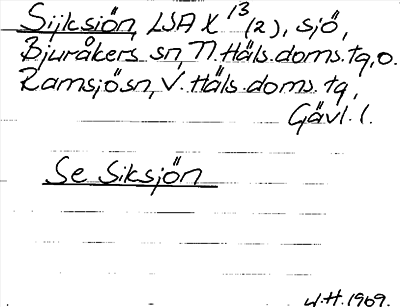 Sijksjön, LSA X 13 (2), sjö,
Bjuråkers sn, N. Häls. doms. tg, o.
Ramsjö sn, V. Häls. doms. tg,
Gävl. l.
Se Siksjön
H. 1969.